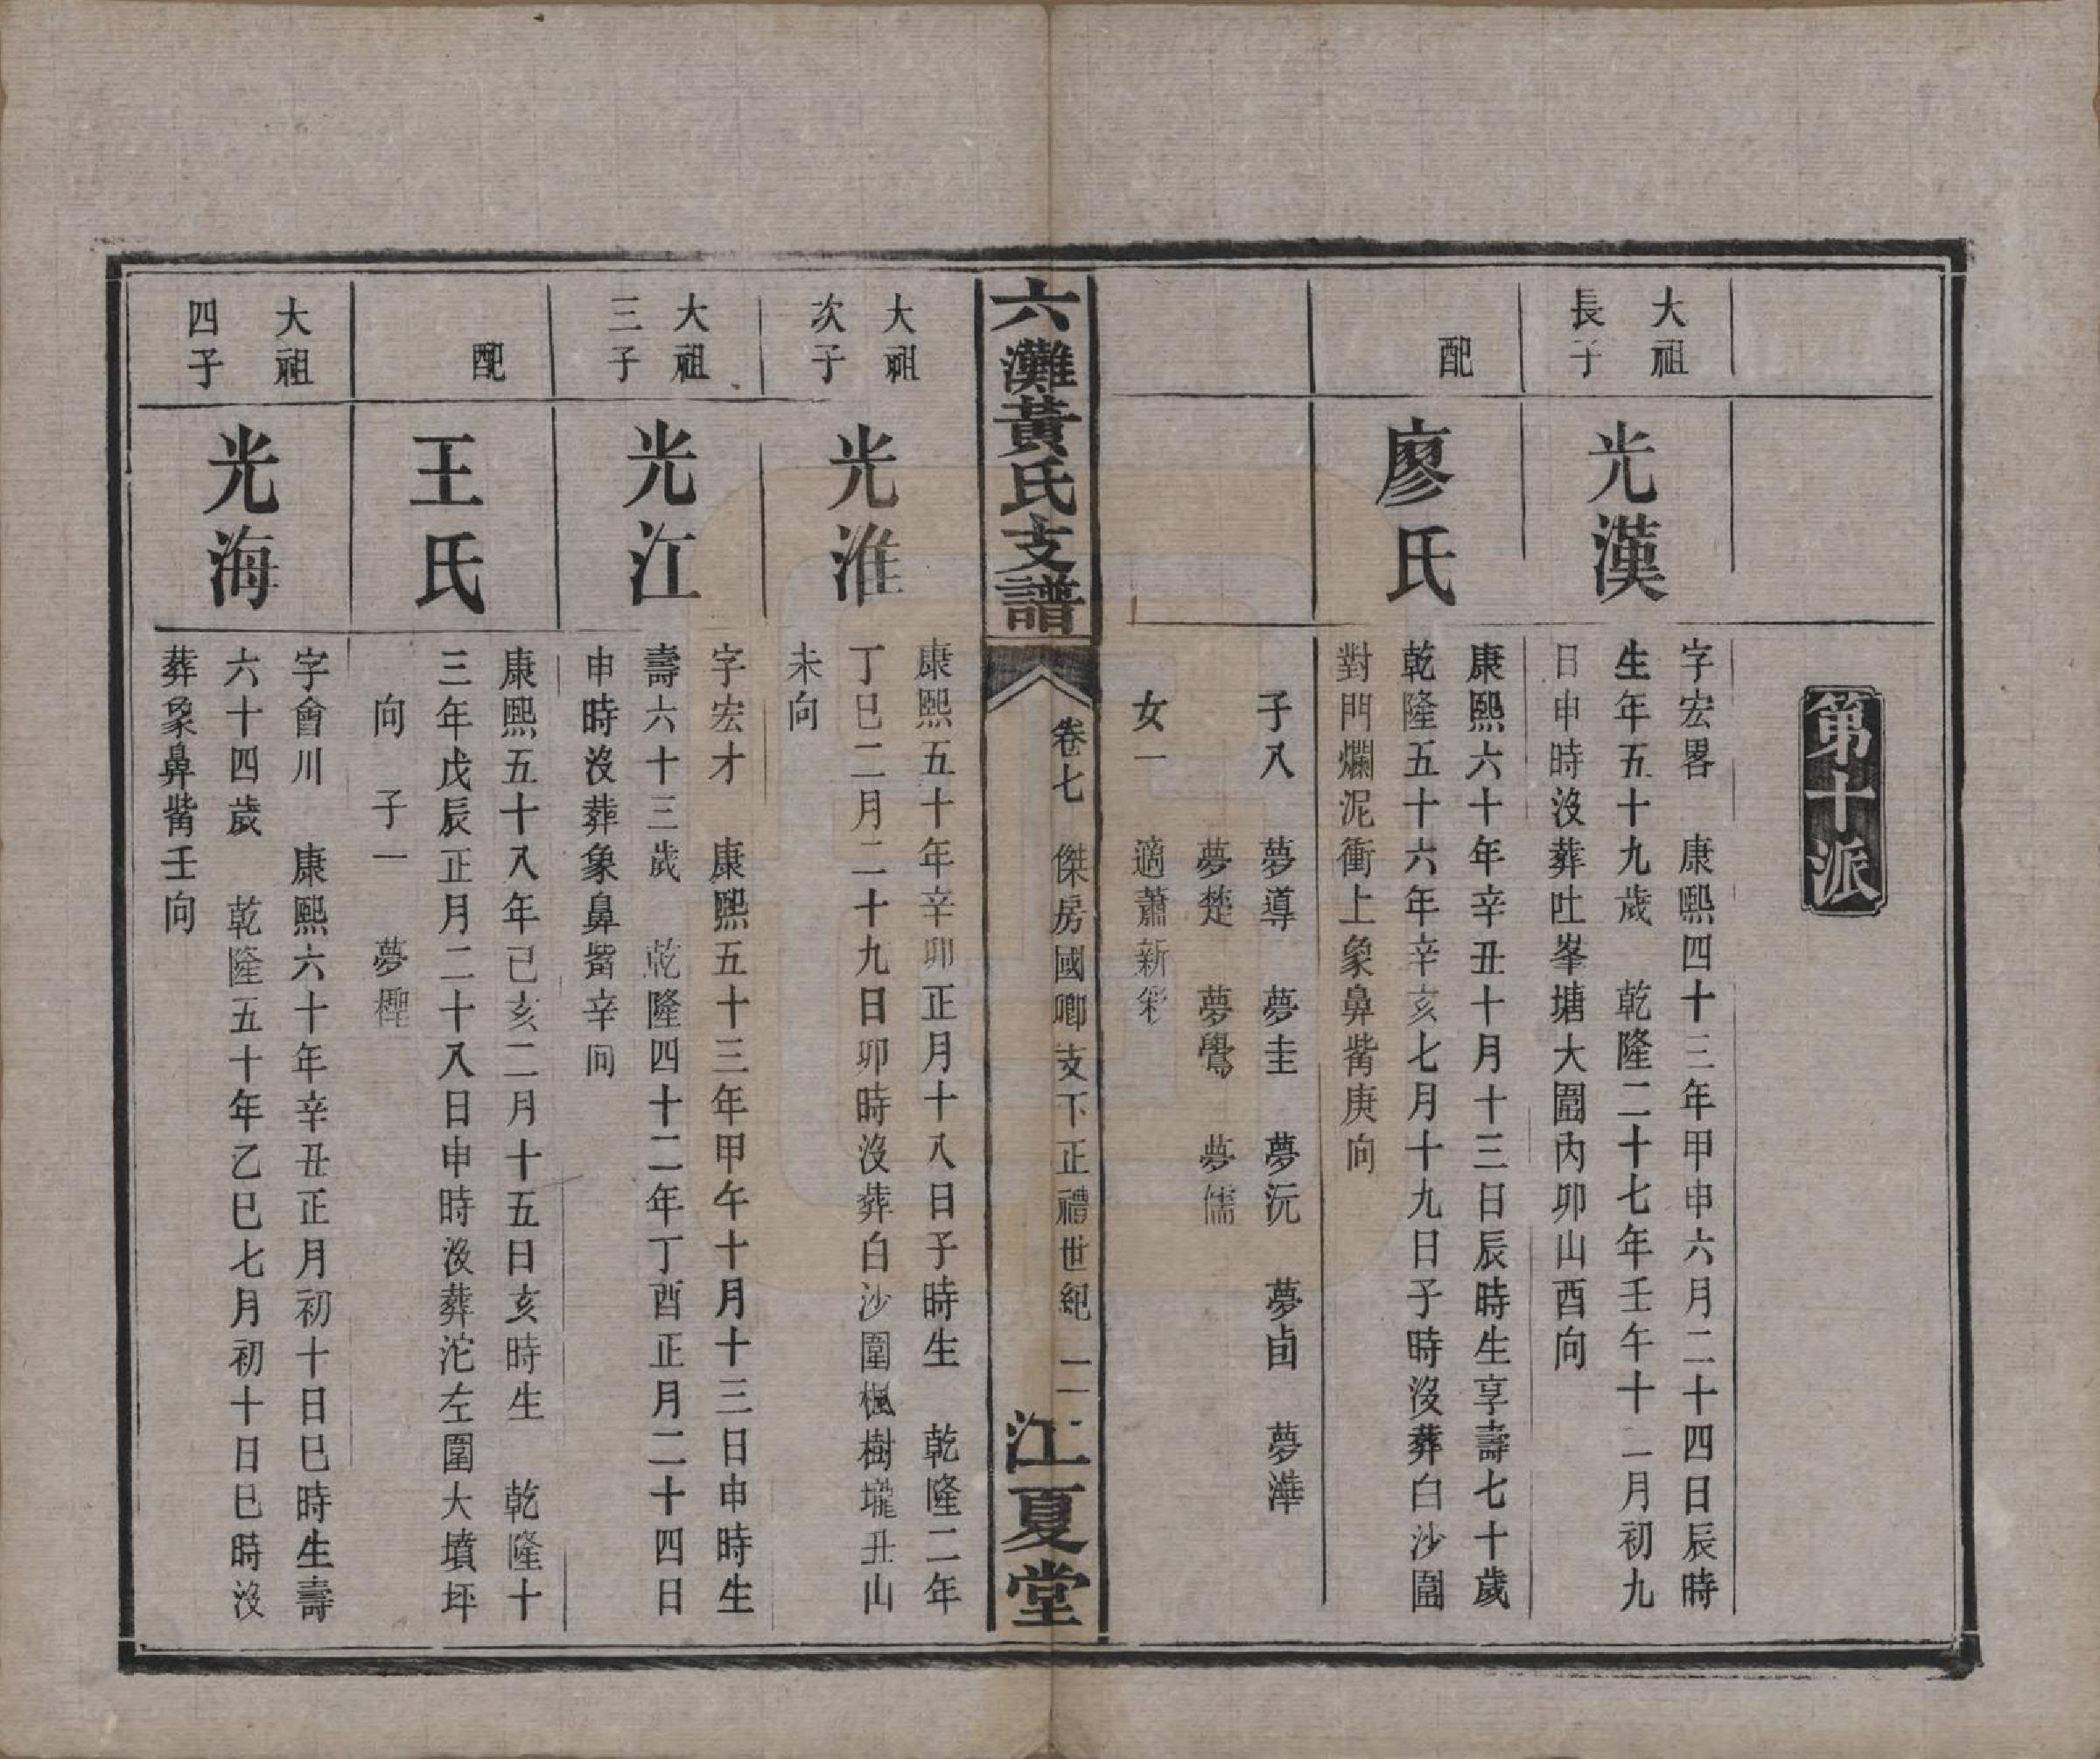 第十派
大祖
長子
光漢
字宏畧　康熙四十三年甲申六月二十四日辰時
生年五十九歲　乾隆二十七年壬午十一月初九
日申時沒葬吐峯塘大圍內卯山酉向
配
廖氏
康熙六十年辛丑十月十三日辰時生享壽七十歲
乾隆五十六年辛亥七月十九日子時沒葬白沙圍
對門爛泥衝上象鼻觜庚向
子八　夢導　夢圭　夢沅　夢卣　夢灘
夢楚　夢鸞　夢儒
女一　適蕭新彩
六灘黃氏支譜
卷七　傑房國卿支下正禮世紀　二
江夏堂
大祖
次子
光淮
康熙五十年辛卯正月十八日子時生　乾隆二年
丁巳二月二十九日卯時沒葬白沙圍楓樹壠丑山
未向
大祖
三子
光江
字宏才　康熙五十三年甲午十月十三日申時生
壽六十三歲　乾隆四十二年丁酉正月二十四日
申時沒葬象鼻觜辛向
配
王氏
康熙五十八年己亥二月十五日亥時生　乾隆十
三年戊辰正月二十八日申時沒葬沱左圍大墳坪
向　子一　夢檉
大祖
四子
光海
字會川　康熙六十年辛丑正月初十日巳時生壽
六十四歲　乾隆五十年乙巳七月初十日巳時沒
葬象鼻觜壬向